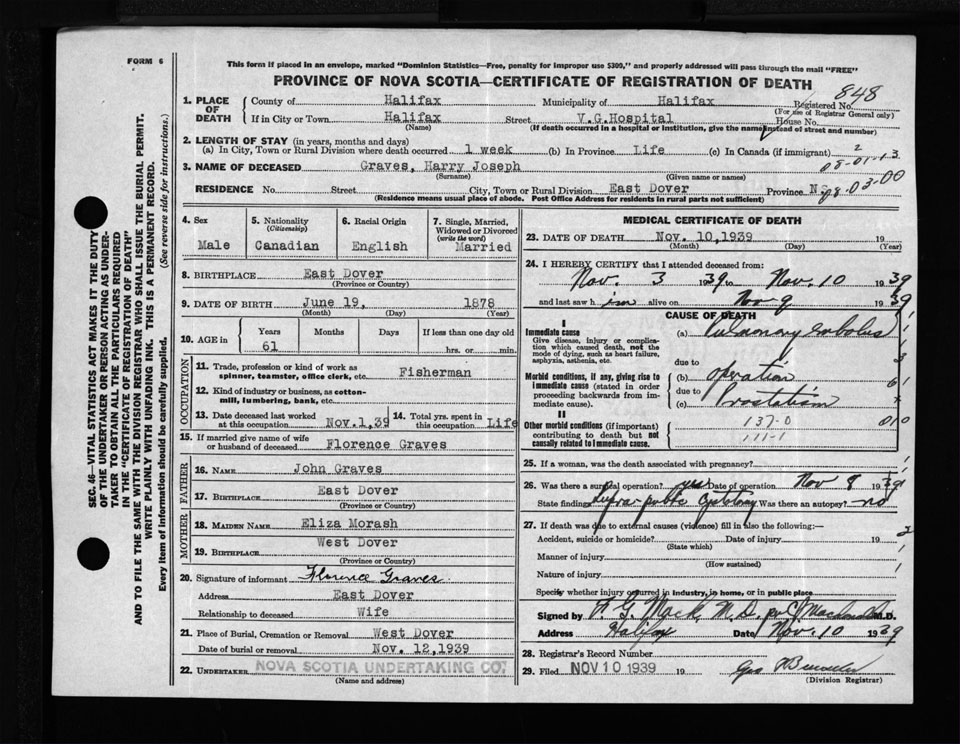 FORM 6
This form if placed in an envelope, marked "Dominion Statistics—Free, penalty for improper use $300," and properly addressed will pass through the mail "FREE"
PROVINCE OF NOVA SCOTIA—CERTIFICATE OF REGISTRATION OF DEATH
SEC. 46—VITAL STATISTICS ACT MAKES IT THE DUTY
OF THE UNDERTAKER OR PERSON ACTING AS UNDER-
TAKER TO OBTAIN ALL THE PARTICULARS REQUIRED
IN THE "CERTIFICATE OF REGISTRATION OF DEATH"
AND TO FILE THE SAME WITH THE DIVISION REGISTRAR WHO SHALL ISSUE THE BURIAL PERMIT.
WRITE PLAINLY WITH UNFADING INK. THIS IS A PERMANENT RECORD.
Every item of information should be carefully supplied. (See reverse side for instructions.)
1. PLACE OF DEATH County of Halifax Municipality of Halifax Registered No. 848
(For use of Registrar General only)
If in City or Town Halifax Street V.G.Hospital House No.
(Name) (If death occurred in a hospital or institution, give the name instead of street and number)
2. LENGTH OF STAY (in years, months and days)
(a) In City, Town or Rural Division where death occurred 1 week (b) In Province Life (c) In Canada (if immigrant) 2
08-01-13
3. NAME OF DECEASED Graves, Harry Joseph
(Surname) (Given name or names)
08-03-00
RESIDENCE No. Street City, Town or Rural Division East Dover Province N.S.
(Residence means usual place of abode. Post Office Address for residents in rural parts not sufficient)
4. Sex Male
5. Nationality (Citizenship) Canadian
6. Racial Origin English
7. Single, Married, Widowed or Divorced (write the word) Married
8. BIRTHPLACE East Dover
(Province or Country)
9. DATE OF BIRTH June 19, 1878
(Month) (Day) (Year)
10. AGE in Years Months Days If less than one day old
61 hrs. or min.
OCCUPATION
11. Trade, profession or kind of work as spinner, teamster, office clerk, etc. Fisherman
12. Kind of industry or business, as cotton-mill, lumbering, bank, etc.
13. Date deceased last worked at this occupation Nov.1,39
14. Total yrs. spent in this occupation Life
15. If married give name of wife or husband of deceased Florence Graves
FATHER
16. NAME John Graves
17. BIRTHPLACE East Dover
(Province or Country)
MOTHER
18. MAIDEN NAME Eliza Morash
19. BIRTHPLACE West Dover
(Province or Country)
20. Signature of informant Florence Graves
Address East Dover
Relationship to deceased Wife
21. Place of Burial, Cremation or Removal West Dover
Date of burial or removal Nov. 12,1939
22. UNDERTAKER NOVA SCOTIA UNDERTAKING CO.
(Name and address)
MEDICAL CERTIFICATE OF DEATH
23. DATE OF DEATH Nov. 10,1939 19
(Month) (Day) (Year)
24. I HEREBY CERTIFY that I attended deceased from:
Nov. 3 1939 to Nov. 10 1939
and last saw him alive on Nov 9 1939
CAUSE OF DEATH
I
Immediate cause
Give disease, injury or complication which caused death, not the mode of dying, such as heart failure, asphyxia, asthenia, etc.
(a) Pulmonary Embolus
due to
Morbid conditions, if any, giving rise to immediate cause (stated in order proceeding backwards from immediate cause).
(b) operation
due to
(c) Prostatism
II
Other morbid conditions (if important) contributing to death but not causally related to immediate cause.
137-0
111-1
010
25. If a woman, was the death associated with pregnancy?
26. Was there a surgical operation? yes Date of operation Nov 8 1939
State findings Supra-pubic Cystotomy Was there an autopsy? no
27. If death was due to external causes (violence) fill in also the following:—
Accident, suicide or homicide? Date of injury 19
(State which)
Manner of injury
(How sustained)
Nature of injury
Specify whether injury occurred in industry, in home, or in public place
Signed by F. G. Mack, M.D. M.D.
Address Halifax Date Nov. 10 1939
28. Registrar's Record Number
29. Filed NOV 10 1939 19
(Division Registrar)